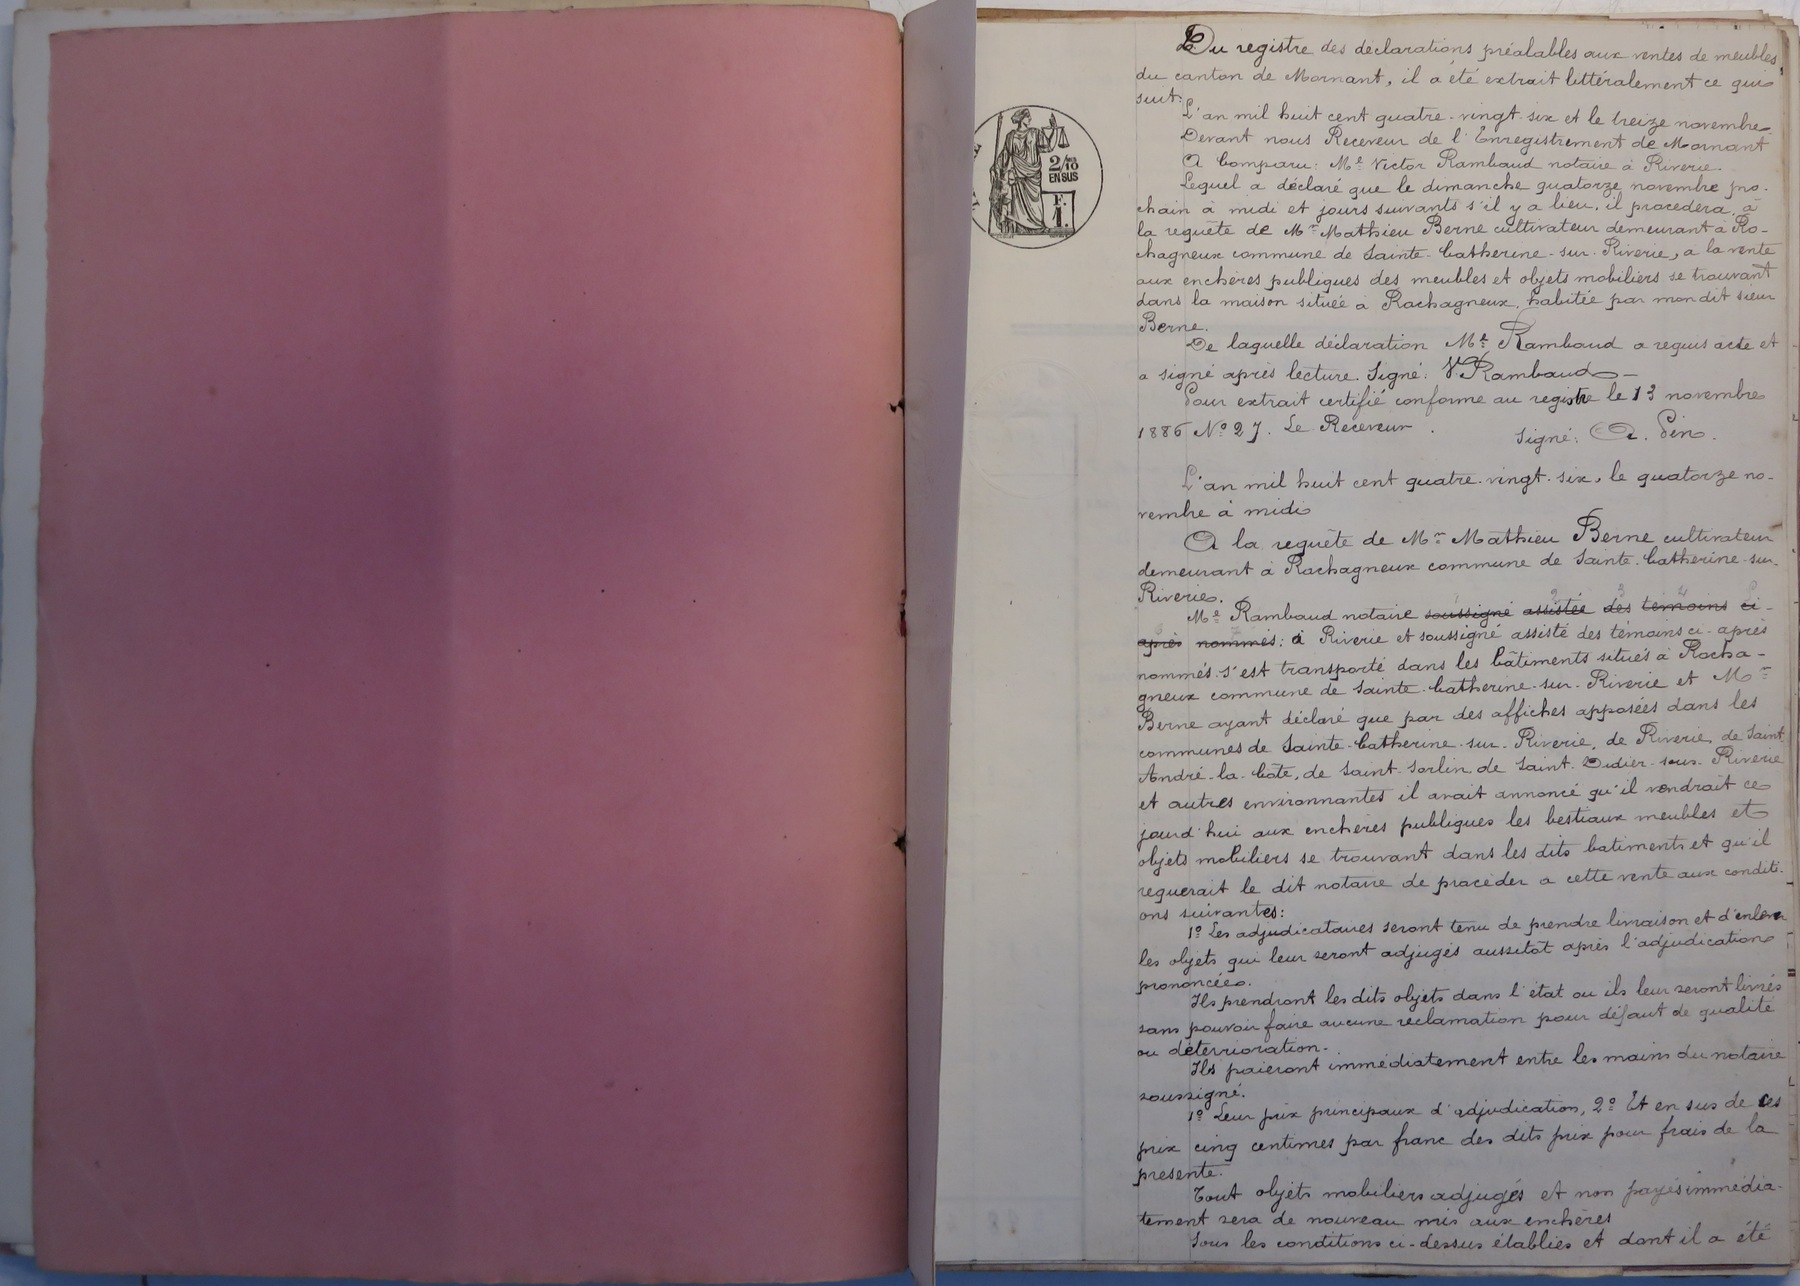 Du registre des déclarations préalables aux ventes de meubles
du canton de Mornant, il a été extrait littéralement ce qui
suit:
L'an mil huit cent quatre-vingt-six et le treize novembre
Devant nous Receveur de l'Enregistrement de Mornant
A Comparu: Me Victor Rambaud notaire à Riverie.
Lequel a déclaré que le dimanche quatorze novembre pro-
chain à midi et jours suivants s'il y a lieu, il procédera, à
la requête de Mr Mathieu Berne cultivateur demeurant à Ro-
chagneux commune de Sainte-Catherine-sur-Riverie, a la vente
aux enchères publiques des meubles et objets mobiliers se trouvant
dans la maison située à Rochagneux, habitée par mon dit sieur
Berne.
De laquelle déclaration Me Rambaud a requis acte et
a signé après lecture. Signé: V Rambaud
Pour extrait certifié conforme au registre le 13 novembre
1886 No 27. Le Receveur. Signé: A. Pin.
2/10
EN SUS
F.
1.
L'an mil huit cent quatre-vingt-six, le quatorze no-
vembre à midi
A la requête de Mr Mathieu Berne cultivateur
demeurant à Rochagneux commune de Sainte-Catherine-sur-
Riverie.
Me Rambaud notaire soussigné assistée des témoins ci-
après nommés: à Riverie et soussigné assisté des témoins ci-après
nommés s'est transporté dans les bâtiments situés à Rocha-
gneux commune de Sainte-Catherine-sur-Riverie et Mr
Berne ayant déclaré que par des affiches apposées dans les
communes de Sainte-Catherine-sur-Riverie, de Riverie, de Saint
André-la-Côte, de Saint-Sorlin, de Saint-Didier-sous-Riverie
et autres environnantes il avait annoncé qu'il vendrait ce
jourd'hui aux enchères publiques les bestiaux meubles et
objets mobiliers se trouvant dans les dits batiments et qu'il
requerait le dit notaire de procéder a cette vente aux conditi-
ons suivantes:
1o Les adjudicataires seront tenu de prendre livraison et d'enlever
les objets qui leur seront adjugés aussitôt après l'adjudication
prononcée.
Ils prendront les dits objets dans l'état ou ils leur seront livrés
sans pouvoir faire aucune réclamation pour défaut de qualité
ou déterrioration.
Ils paieront immédiatement entre les mains du notaire
soussigné.
1o Leur prix principaux d'adjudication, 2o Et en sus de ces
prix cinq centimes par franc des dits prix pour frais de la
présente.
Tout objets mobiliers adjugés et non payés immédia-
tement sera de nouveau mis aux enchères
Sous les conditions ci-dessus établies et dont il a été